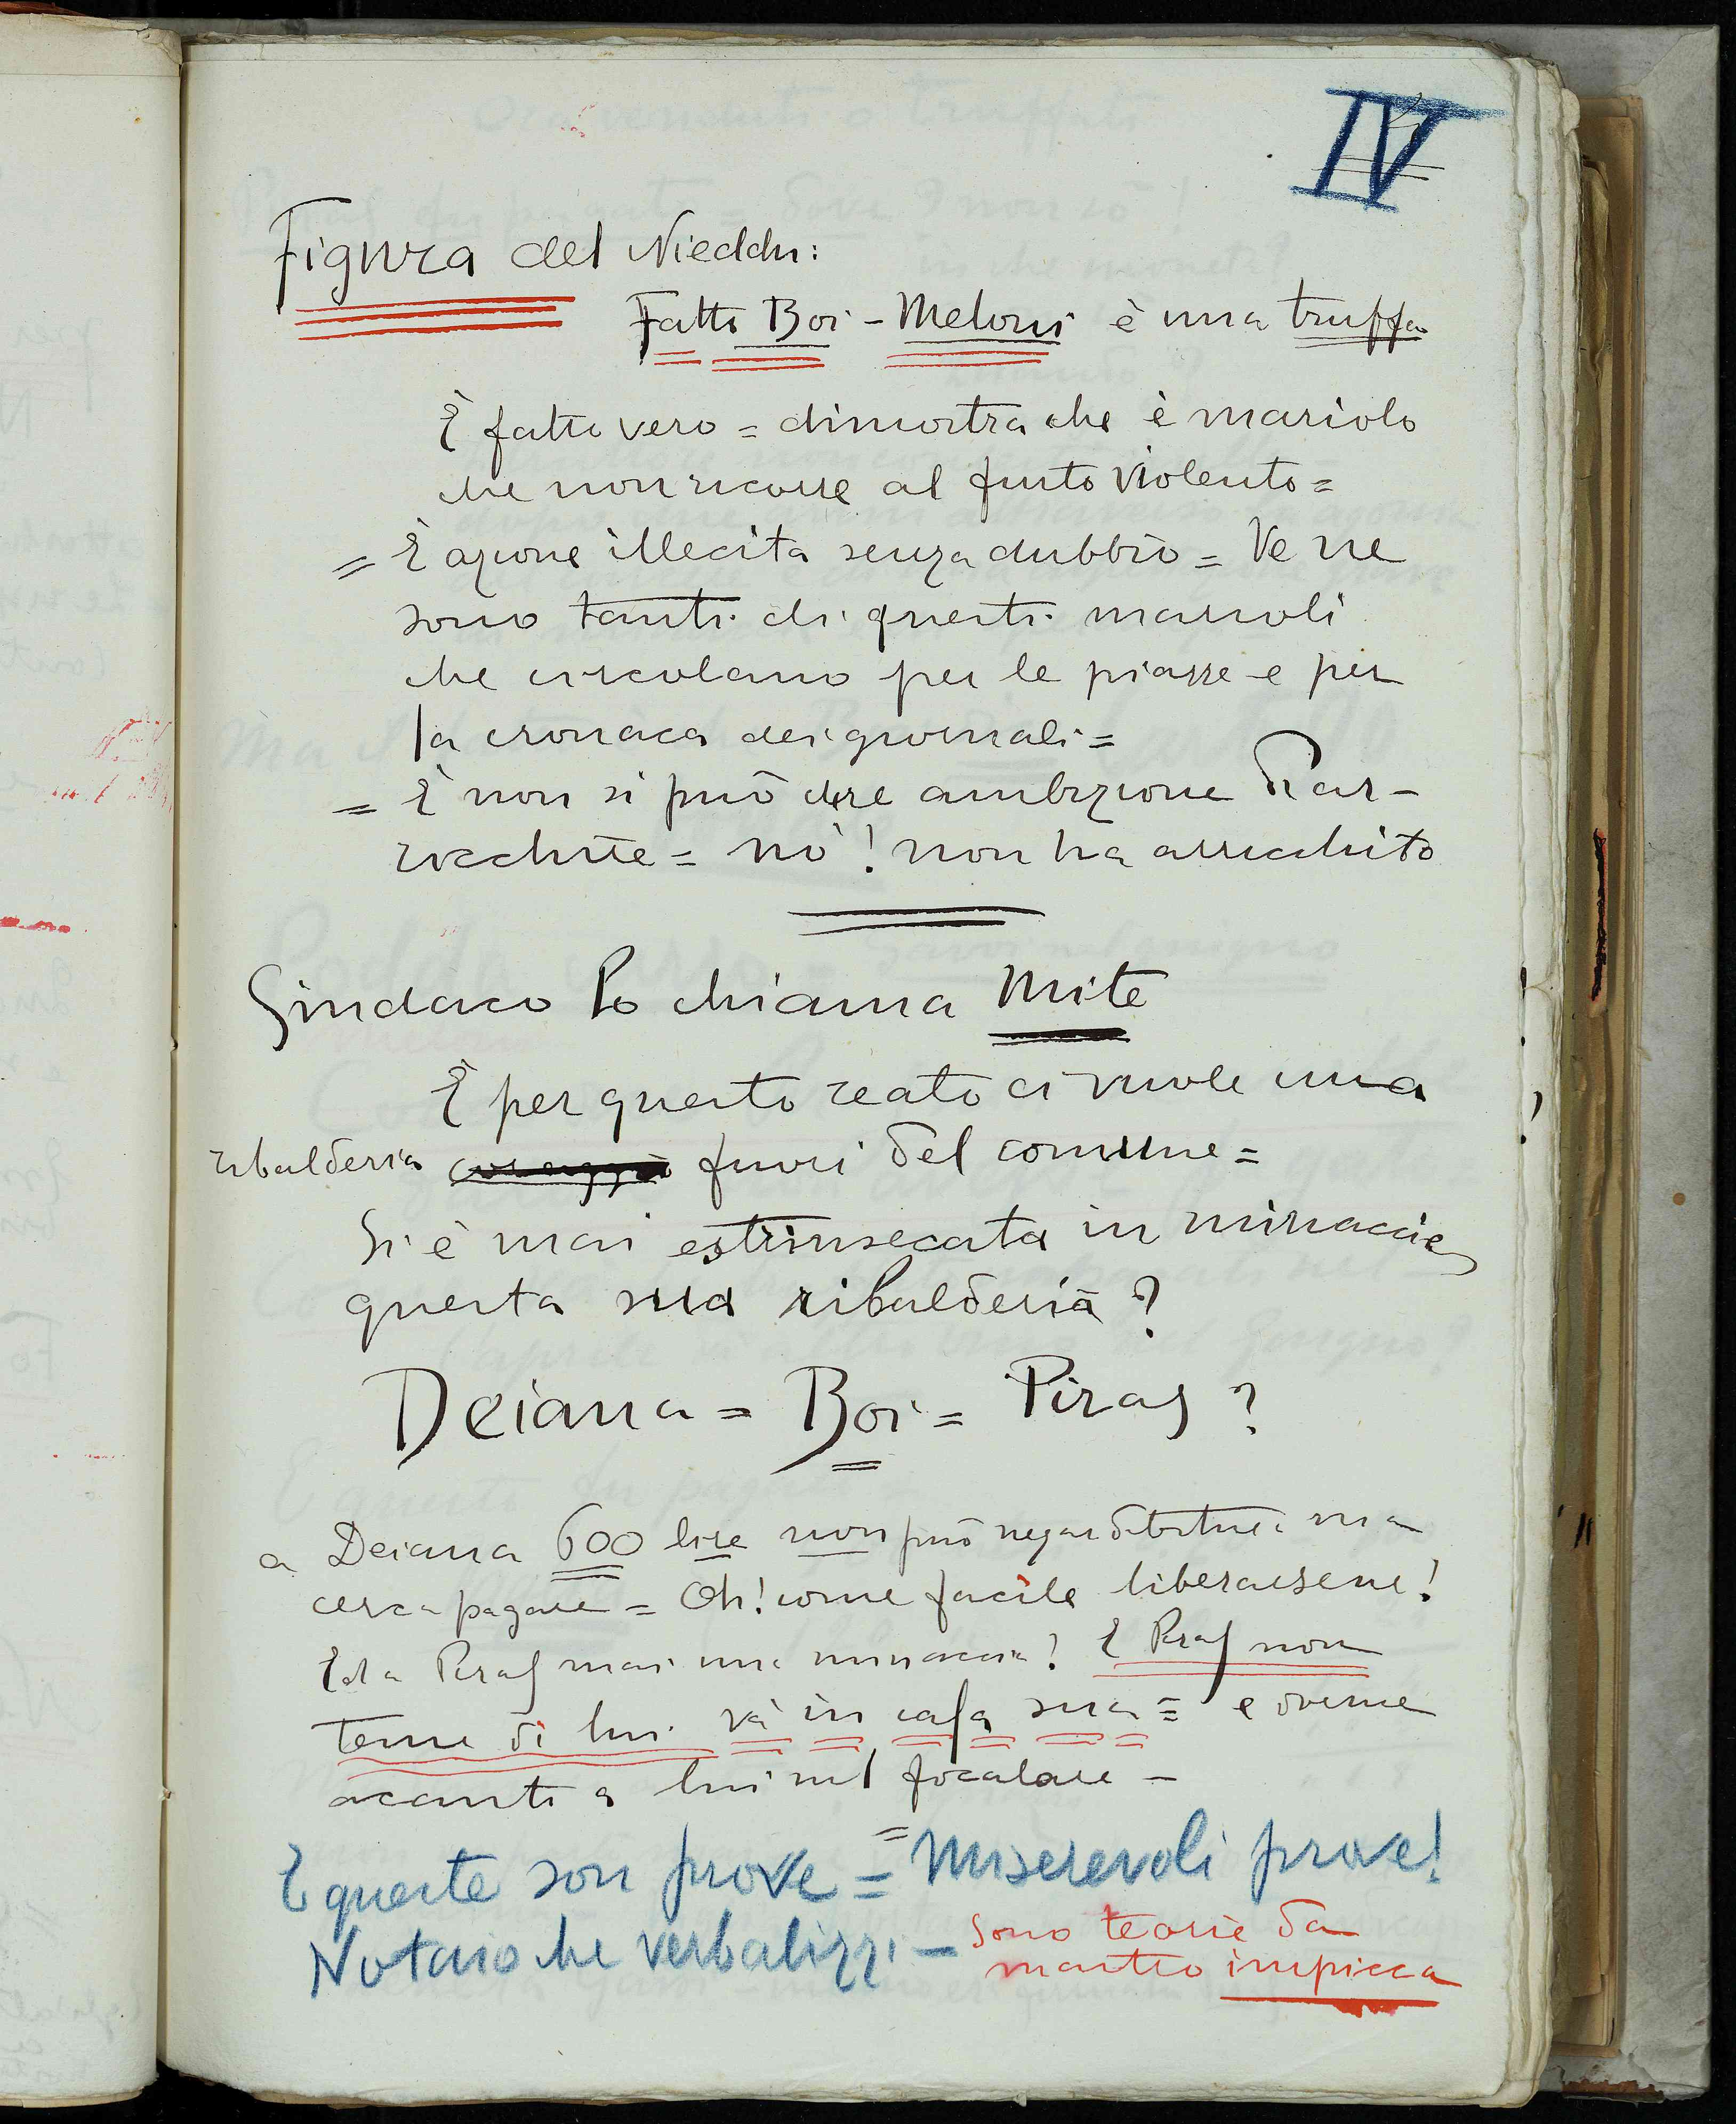 IV
Figura del Nieddu:
Fatto Boi - Meloni è una truffa
È fatto vero = dimostra che è mariolo
che non ricorre al furto violento =
= È azione illecita senza dubbio = Ve ne
sono tanti di questi marioli
che circolano per le piazze e per
la cronaca dei giornali =
= E non si può dire ambizione di ar-
ricchire = no! non ha arricchito
Sindaco lo chiama mite
E per questo reato ci vuole una
ribalderia coraggio fuori del comune =
Si è mai estrinsecata in minaccie
questa sua ribalderia?
Deiana = Boi = Piras?
a Deiana 600 lire non può negar ma
cerca pagare = Oh! come facile liberarsene!
Ed a Piras mai una minaccia! E Piras non
teme di lui và in casa sua = e dorme
accanto a lui nel focolare -
E queste son prove = = Miserevoli prove!
Notaio che verbalizzi - sono teorie da
mastro impicca